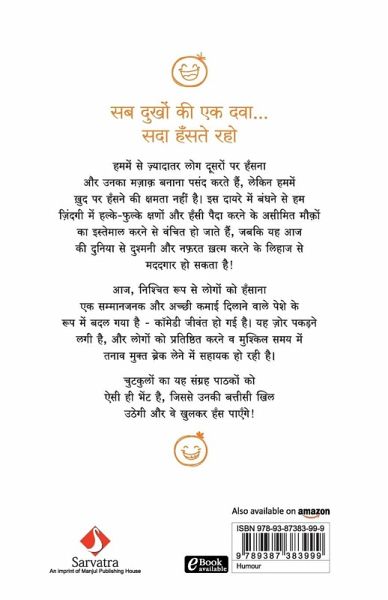 सब दुखों की एक दवा...
सदा हँसते रहो
हममें से ज़्यादातर लोग दूसरों पर हँसना
और उनका मज़ाक़ बनाना पसंद करते हैं, लेकिन हममें
ख़ुद पर हँसने की क्षमता नहीं है। इस दायरे में बंघने से हम
ज़िंदगी में हल्के-फुल्के क्षणों और हँसी पैदा करने के असीमित मौक़ों
का इस्तेमाल करने से वंचित हो जाते हैं, जबकि यह आज
की दुनिया से दुश्मनी और नफ़रत ख़त्म करने के लिहाज से
मददगार हो सकता है!
आज, निश्चित रूप से लोगों को हँसाना
एक सम्मानजनक और अच्छी कमाई दिलाने वाले पेशे के
रूप में बदल गया है - कॉमेडी जीवंत हो गई है। यह ज़ोर पकड़ने
लगी है, और लोगों को प्रतिष्ठित करने व मुश्किल समय में
तनाव मुक्त ब्रेक लेने में सहायक हो रही है।
चुटकुलों का यह संग्रह पाठकों को
ऐसी ही भेंट है, जिससे उनकी बत्तीसी खिल
उठेगी और वे खुलकर हँस पाएँगे!
Also available on amazon
ISBN 978-93-87383-99-9
9 789387 383999
Humour
eBook
available
Sarvatra
An imprint of Manjul Publishing House